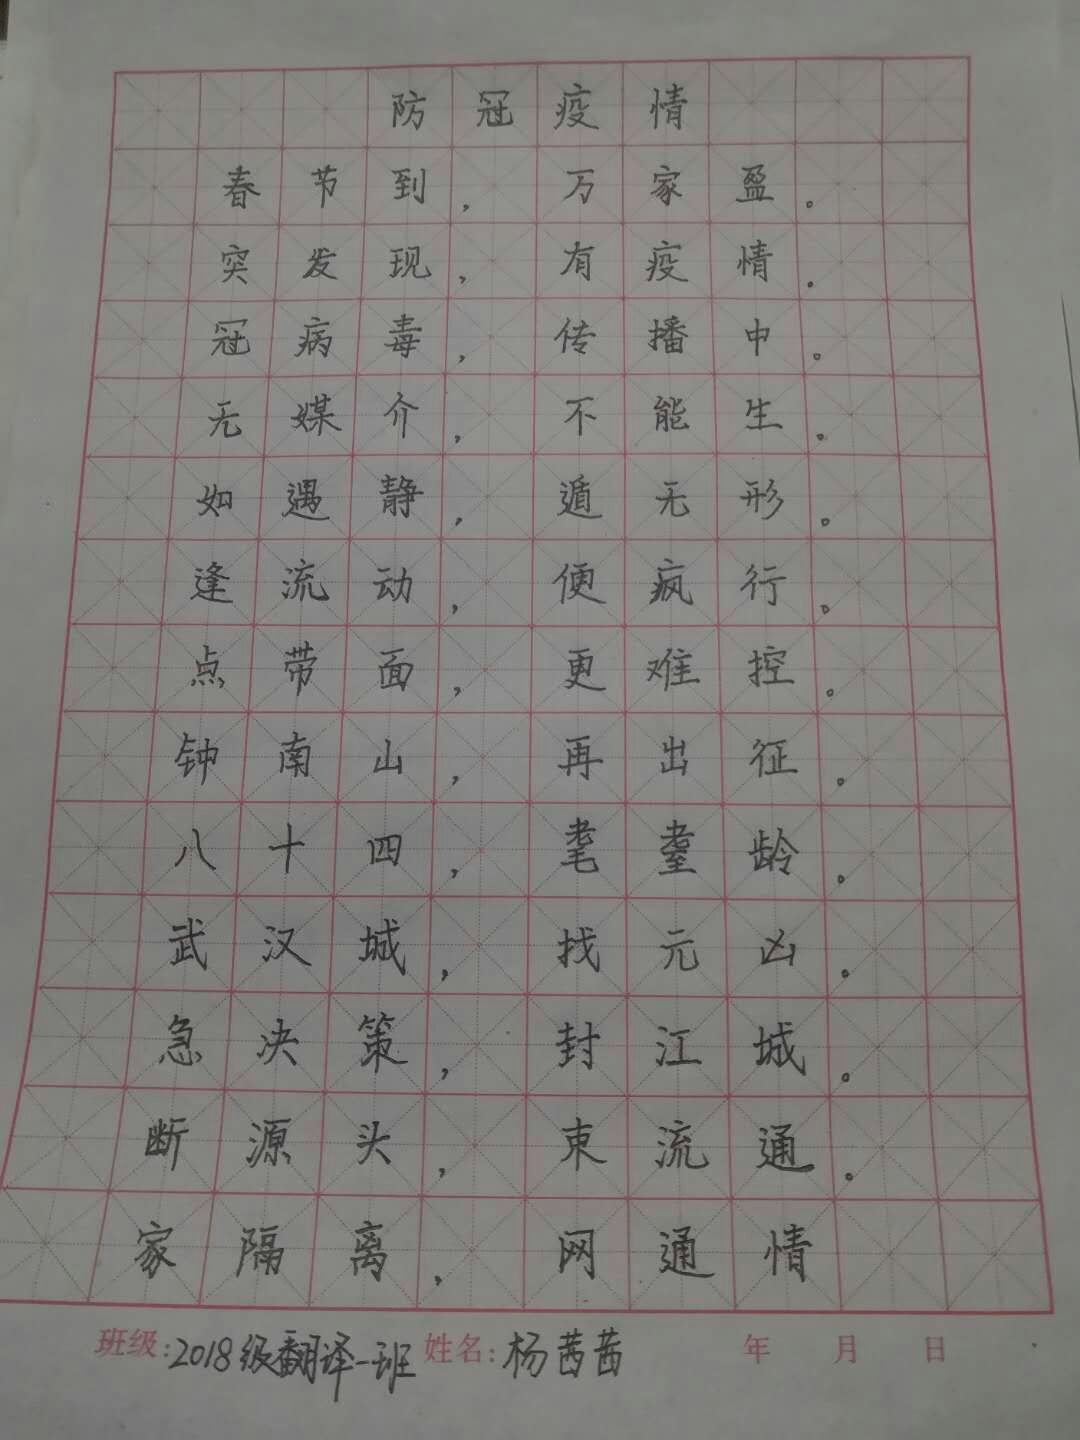 防冠疫情
春节到，万家盈。
突发现，有疫情。
冠病毒，传播中。
无媒介，不能生。
如遇静，遁无形。
逢流动，便疯行。
点带面，更难控。
钟南山，再出征。
八十四，耄耋龄。
武汉城，找元凶。
急决策，封江城。
断源头，束流通。
家隔离，网通情
班级:2018级翻译一班 姓名:杨茜茜 年 月 日